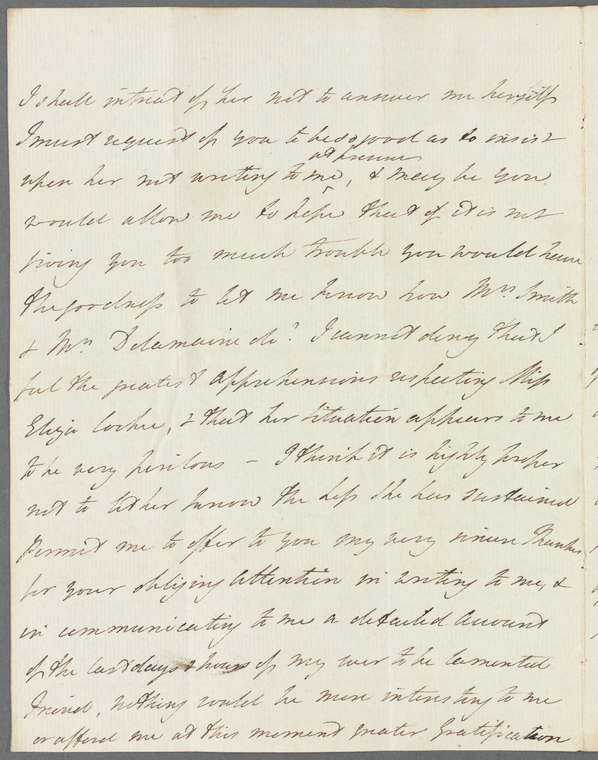 I shall intreat of her not to answer me herself
I must request of you to be so good as to insist
at present
upon her not writing to me, & may be you
would allow me to hope that if it is not
giving you too much trouble you would have
the goodness to let me know how Mrs. Smith
& Mrs. Delamaine do? I cannot deny that I
feel the greatest apprehensions respecting Miss
Eliza Cocke, & that her situation appears to me
to be very perilous – I think it is highly proper
not to let her know the loss she has sustained
Permit me to offer to you my very sincere Thanks
for your obliging attention in writing to me, &
in communicating to me a detailed account
of the last days & hours of my ever to be lamented
Friend, nothing would be more interesting to me
or afford me at this moment greater Gratification